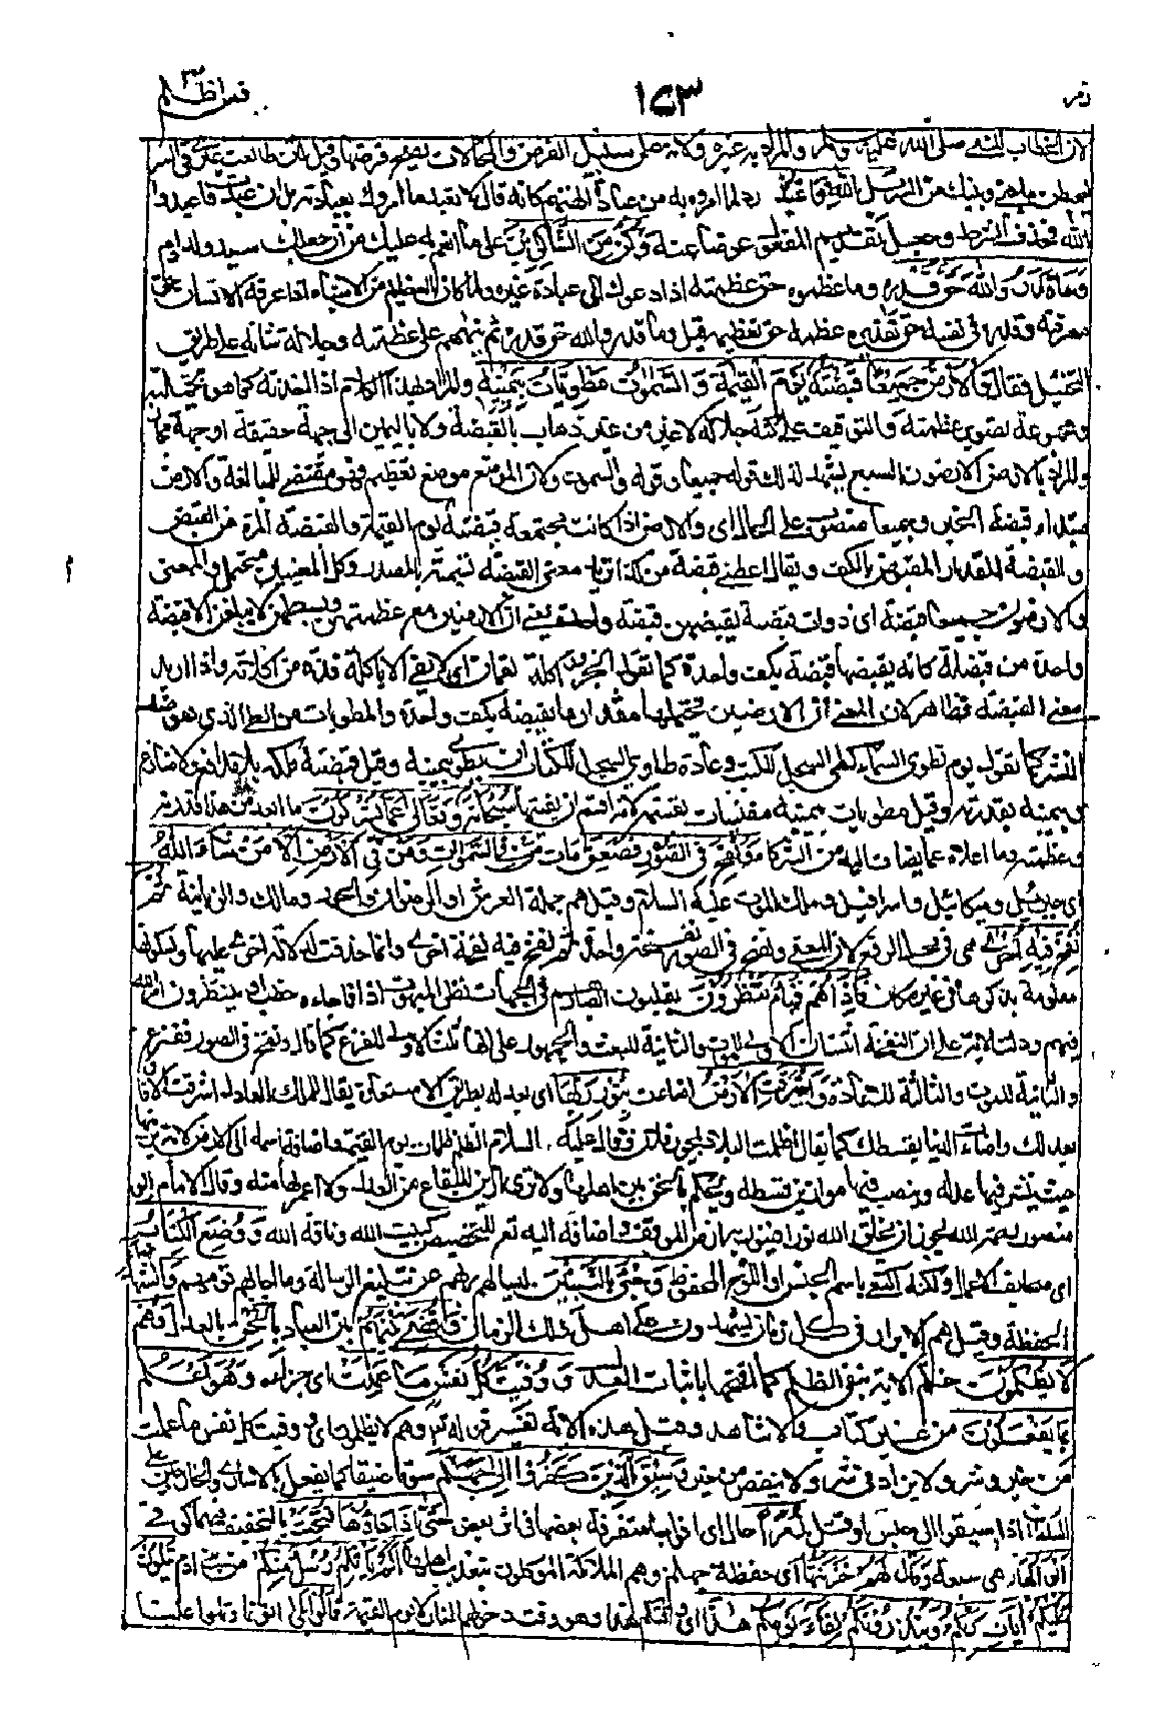 زمر
١٧٣
فمن اظلم ٢٤
لان الخطاب للنبي صلى الله عليه وسلم والمراد به غيره ولانه على سبيل الفرض والمحالات يصح فرضها وقيل لئن طالعت غيري في السر
ليحبطن ما بيني وبينك من السر بل الله فاعبد رد لما امروه به من عبادة آلهتهم كانه قال لا تعبد ما امروك بعبادته بل ان عبدت فاعبد
الله فحذف الشرط وجعل تقديم المفعول عوضا عنه وكن من الشاكرين على ما انعم به عليك من ان جعلك سيد ولد آدم
وما قدروا الله حق قدره وما عظموه حق عظمته اذ دعوك الى عبادة غيره ولما كان العظيم من الاشياء اذا عرفه الانسان حق
معرفته وقدره في نفسه حق تقديره عظمه حق تعظيمه قيل وما قدروا الله حق قدره ثم نبههم على عظمته وجلالة شانه على طريق
التخييل فقال والارض جميعا قبضته يوم القيمة والسموات مطويات بيمينه والمراد بهذا الكلام اذا اخذته كما هو بجملته
ومجموعه تصوير عظمته والتوقيف على كنه جلاله لا غير من غير ذهاب بالقبضة ولا باليمين الى جهة حقيقة او جهة مجاز
والمراد بالارض الارضون السبع يشهد لذلك قوله جميعا وقوله والسموات ولان الموضع موضع تعظيم فهو مقتض للمبالغة والارض
مبتدأ وقبضته الخبر وجميعا منصوب على الحال اى والارض اذا كانت مجتمعة قبضته يوم القيمة والقبضة المرة من القبض
والقبضة المقدار المقبوض بالكف ويقال اعطني قبضة من كذا تريد معنى القبضة تسمية بالمصدر وكلا المعنيين محتمل والمعنى
والارضون جميعا قبضته اى ذوات قبضته يقبضهن قبضة واحدة يعني ان الارضين مع عظمتهن وبسطتهن لا يبلغن الا قبضة
واحدة من قبضاته كانه يقبضها قبضة بكف واحدة كما تقول الجزور اكلة لقمان اى لا تفي الا باكلة فذة من اكلاته واذا اريد
معنى القبضة فظاهر لان المعنى ان الارضين بجملتها مقدار ما يقبضه بكف واحدة والمطويات من الطي الذي هو ضد
النشر كما قوله يوم نطوي السماء كطي السجل للكتب وعادة طاوي السجل للكتاب ان يطويه بيمينه وقيل قبضته ملكه بلا مدافع ولا منازع
وبيمينه بقدرته وقيل مطويات بيمينه مفنيات بقسمه لانه اقسم ان يفنيها سبحانه وتعالى عما يشركون ما ابعد من هذا قدرته
وعظمته وما اعلاه عما يضاف اليه من الشركاء ونفخ في الصور فصعق مات من في السموات ومن في الارض الا من شاء الله
اى جبرئيل وميكائيل واسرافيل وملك الموت عليه السلام وقيل هم حملة العرش او الرضوان والحور ومالك والزبانية ثم
نفخ فيه اخرى هي في محل الرفع لان المعنى ونفخ في الصور نفخة واحدة ثم نفخ فيه نفخة اخرى وانما حذفت لدلالة اخرى عليها ولكونها
معلومة بذكرها في غير مكان فاذا هم قيام ينظرون يقلبون ابصارهم في الجهات نظر المبهوت اذا فاجاه خطب او ينظرون امر الله
فيهم ودلت الاية على ان النفخة اثنتان الاولى للموت والثانية للبعث والجمهور على انها ثلث الاولى للفزع كما قال ونفخ في الصور ففزع
والثانية للموت والثالثة للاعادة واشرقت الارض اضاءت بنور ربها اى بعدله بطريق الاستعارة يقال للملك العادل اشرقت الافاق
بعدلك واضاءت الدنيا بقسطك كما يقال اظلمت البلاد بجور فلان وقال عليه السلام الظلم ظلمات يوم القيمة واضافة اسمه الى الارض لانه يزينها
حيث ينشر فيها عدله وينصب فيها موازين قسطه ويحكم بالحق بين اهلها ولا ترى ازين للبقاع من العدل ولا اعمر لها منه وقال الامام ابو
منصور رحمه الله يجوز ان يخلق الله نورا فينور به ارض الموقف واضافته اليه تعالى للتخصيص كبيت الله وناقة الله ووضع الكتاب
اى صحايف الاعمال ولكنه اكتفى باسم الجنس او اللوح المحفوظ وجئ بالنبيين ليسالهم ربهم عن تبليغ الرسالة وما اجابهم قومهم والشهداء
الحفظة وقيل هم الابرار في كل زمان يشهدون على اهل ذلك الزمان وقضى بينهم بين العباد بالحق بالعدل وهم
لا يظلمون ختم الاية بنفي الظلم كما افتتحها باثبات العدل ووفيت كل نفس ما عملت اى جزاءه وهو اعلم
بما يفعلون من غير كتاب ولا شاهد وقيل هذه الاية تفسير قوله وهم لا يظلمون اى ووفيت كل نفس ما عملت
من خير وشر ولا يزاد في شر ولا ينقص من خير وسيق الذين كفروا الى جهنم سوقا عنيفا كما يفعل بالاسارى والخارجين على
السلطان اذا سيقوا الى حبس او قتل زمرا حال اى افواجا متفرقة بعضها في اثر بعض حتى اذا جاؤها فتحت بالتخفيف فيهما كوفي
ابوابها هي سبعة وقال لهم خزنتها اى حفظة جهنم وهم الملائكة الموكلون بتعذيب اهلها الم ياتكم رسل منكم من بني ادم يتلون
عليكم آيات ربكم وينذرونكم لقاء يومكم هذا اى وقتكم هذا وهو وقت دخولهم النار لا يوم القيمة قالوا بلى اتونا وتلوا علينا